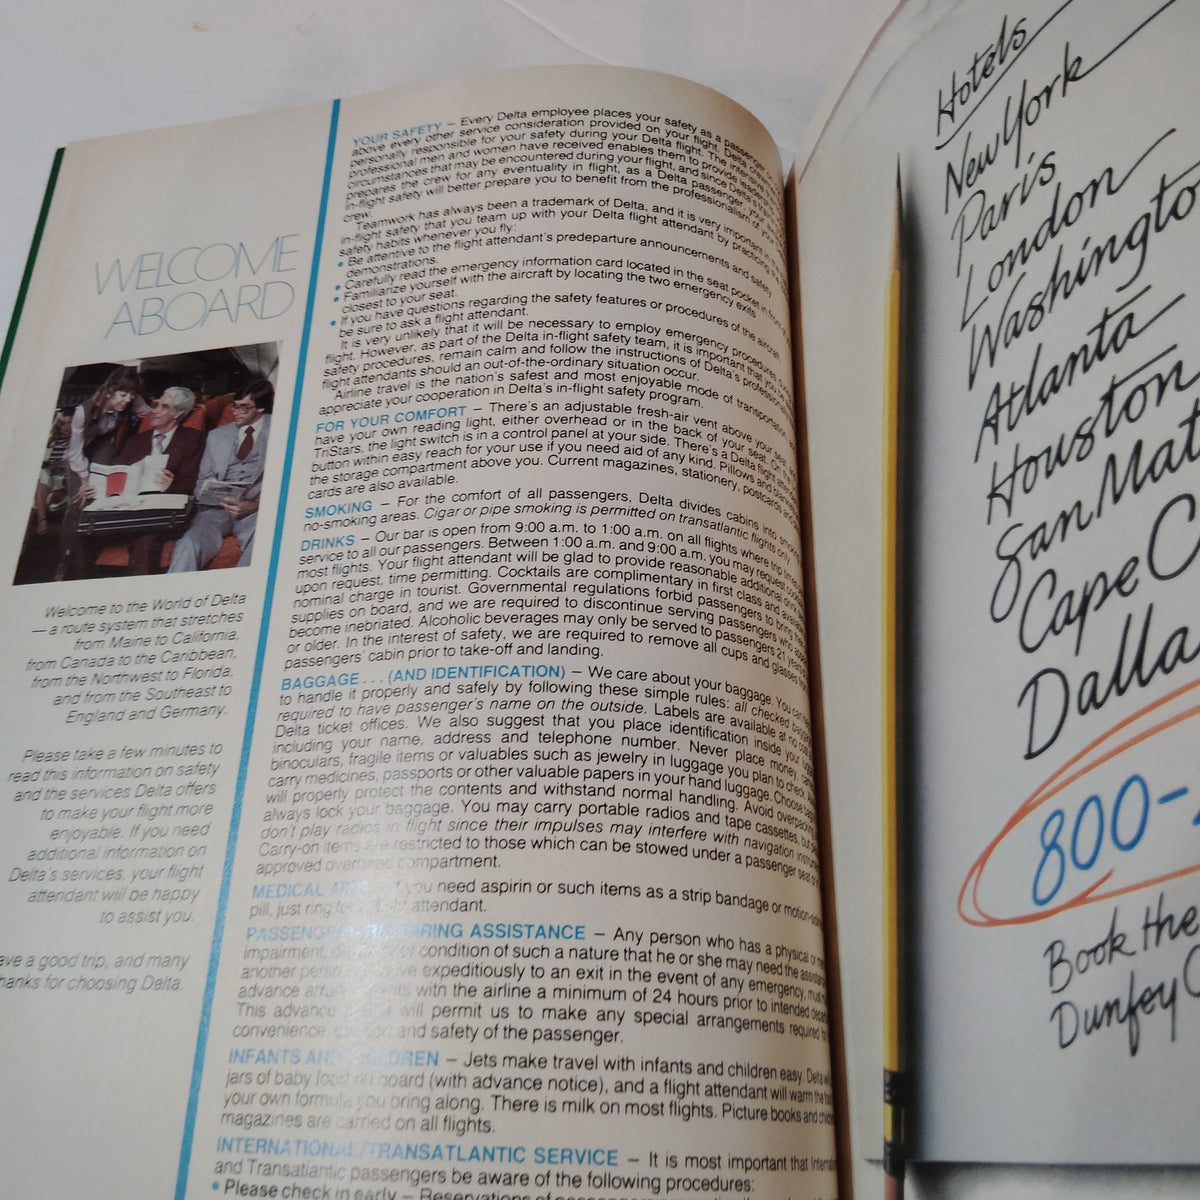 WELCOME
ABOARD
Welcome to the World of Delta
— a route system that stretches
from Maine to California,
from Canada to the Caribbean,
from the Northwest to Florida,
and from the Southeast to
England and Germany.
Please take a few minutes to
read this information on safety
and the services Delta offers
to make your flight more
enjoyable. If you need
additional information on
Delta's services, your flight
attendant will be happy
to assist you.
ave a good trip, and many
hanks for choosing Delta.
YOUR SAFETY – Every Delta employee places your safety as a passenger
above every other service consideration provided on your flight. Delta
personally responsible for your safety during your Delta flight. The intensive
professional men and women have received enables them to provide
circumstances that may be encountered during your flight, and since Delta's
prepares the crew for any eventuality in flight, as a Delta passenger, your
in-flight safety will better prepare you to benefit from the professionalism of your
crew.
Teamwork has always been a trademark of Delta, and it is very important
in-flight safety that you team up with your Delta flight attendant by practicing the
safety habits whenever you fly:
• Be attentive to the flight attendant's predeparture announcements and safety
demonstrations.
• Carefully read the emergency information card located in the seat pocket in front of
• Familiarize yourself with the aircraft by locating the two emergency exits
closest to your seat.
• If you have questions regarding the safety features or procedures of the aircraft
be sure to ask a flight attendant.
It is very unlikely that it will be necessary to employ emergency procedures
flight. However, as part of the Delta in-flight safety team, it is important that you
safety procedures, remain calm and follow the instructions of Delta's professional
flight attendants should an out-of-the-ordinary situation occur.
Airline travel is the nation's safest and most enjoyable mode of transportation
appreciate your cooperation in Delta's in-flight safety program.
FOR YOUR COMFORT – There's an adjustable fresh-air vent above your seat
have your own reading light, either overhead or in the back of your seat. On
TriStars, the light switch is in a control panel at your side. There's a Delta flight
button within easy reach for your use if you need aid of any kind. Pillows and blankets
the storage compartment above you. Current magazines, stationery, postcards and
cards are also available.
SMOKING – For the comfort of all passengers, Delta divides cabins into smoking
no-smoking areas. Cigar or pipe smoking is permitted on transatlantic flights only.
DRINKS – Our bar is open from 9:00 a.m. to 1:00 a.m. on all flights where trip times
service to all our passengers. Between 1:00 a.m. and 9:00 a.m. you may request
most flights. Your flight attendant will be glad to provide reasonable additional drink
upon request, time permitting. Cocktails are complimentary in first class and available
nominal charge in tourist. Governmental regulations forbid passengers to bring
supplies on board, and we are required to discontinue serving passengers who
become inebriated. Alcoholic beverages may only be served to passengers 21 years
or older. In the interest of safety, we are required to remove all cups and glasses from
passengers' cabin prior to take-off and landing.
BAGGAGE . . . (AND IDENTIFICATION) – We care about your baggage. You can
to handle it properly and safely by following these simple rules: all checked baggage
required to have passenger's name on the outside. Labels are available at no cost
Delta ticket offices. We also suggest that you place identification inside your luggage
including your name, address and telephone number. Never place money,
binoculars, fragile items or valuables such as jewelry in luggage you plan to check.
carry medicines, passports or other valuable papers in your hand luggage. Choose
will properly protect the contents and withstand normal handling. Avoid overpacking
always lock your baggage. You may carry portable radios and tape cassettes, but
don't play radios in flight since their impulses may interfere with navigation
Carry-on items are restricted to those which can be stowed under a passenger seat or
approved overhead compartment.
MEDICAL If you need aspirin or such items as a strip bandage or
pill, just ring for attendant.
PASSENGERS REQUIRING ASSISTANCE – Any person who has a physical or
impairment, condition of such a nature that he or she may need the assistance
another person expeditiously to an exit in the event of any emergency, must
advance with the airline a minimum of 24 hours prior to intended
This advance will permit us to make any special arrangements required for
convenience, and safety of the passenger.
INFANTS AND CHILDREN – Jets make travel with infants and children easy. Delta
jars of baby food on board (with advance notice), and a flight attendant will warm the
your own formula you bring along. There is milk on most flights. Picture books and
magazines are carried on all flights.
INTERNATIONAL/TRANSATLANTIC SERVICE – It is most important that
and Transatlantic passengers be aware of the following procedures:
• Please check in early – Reservations
Hotels
New York
Paris
London
Washingto
Atlanta
Houston
San Mat
Cape C
Dalla
800-
Book the
Dunfey